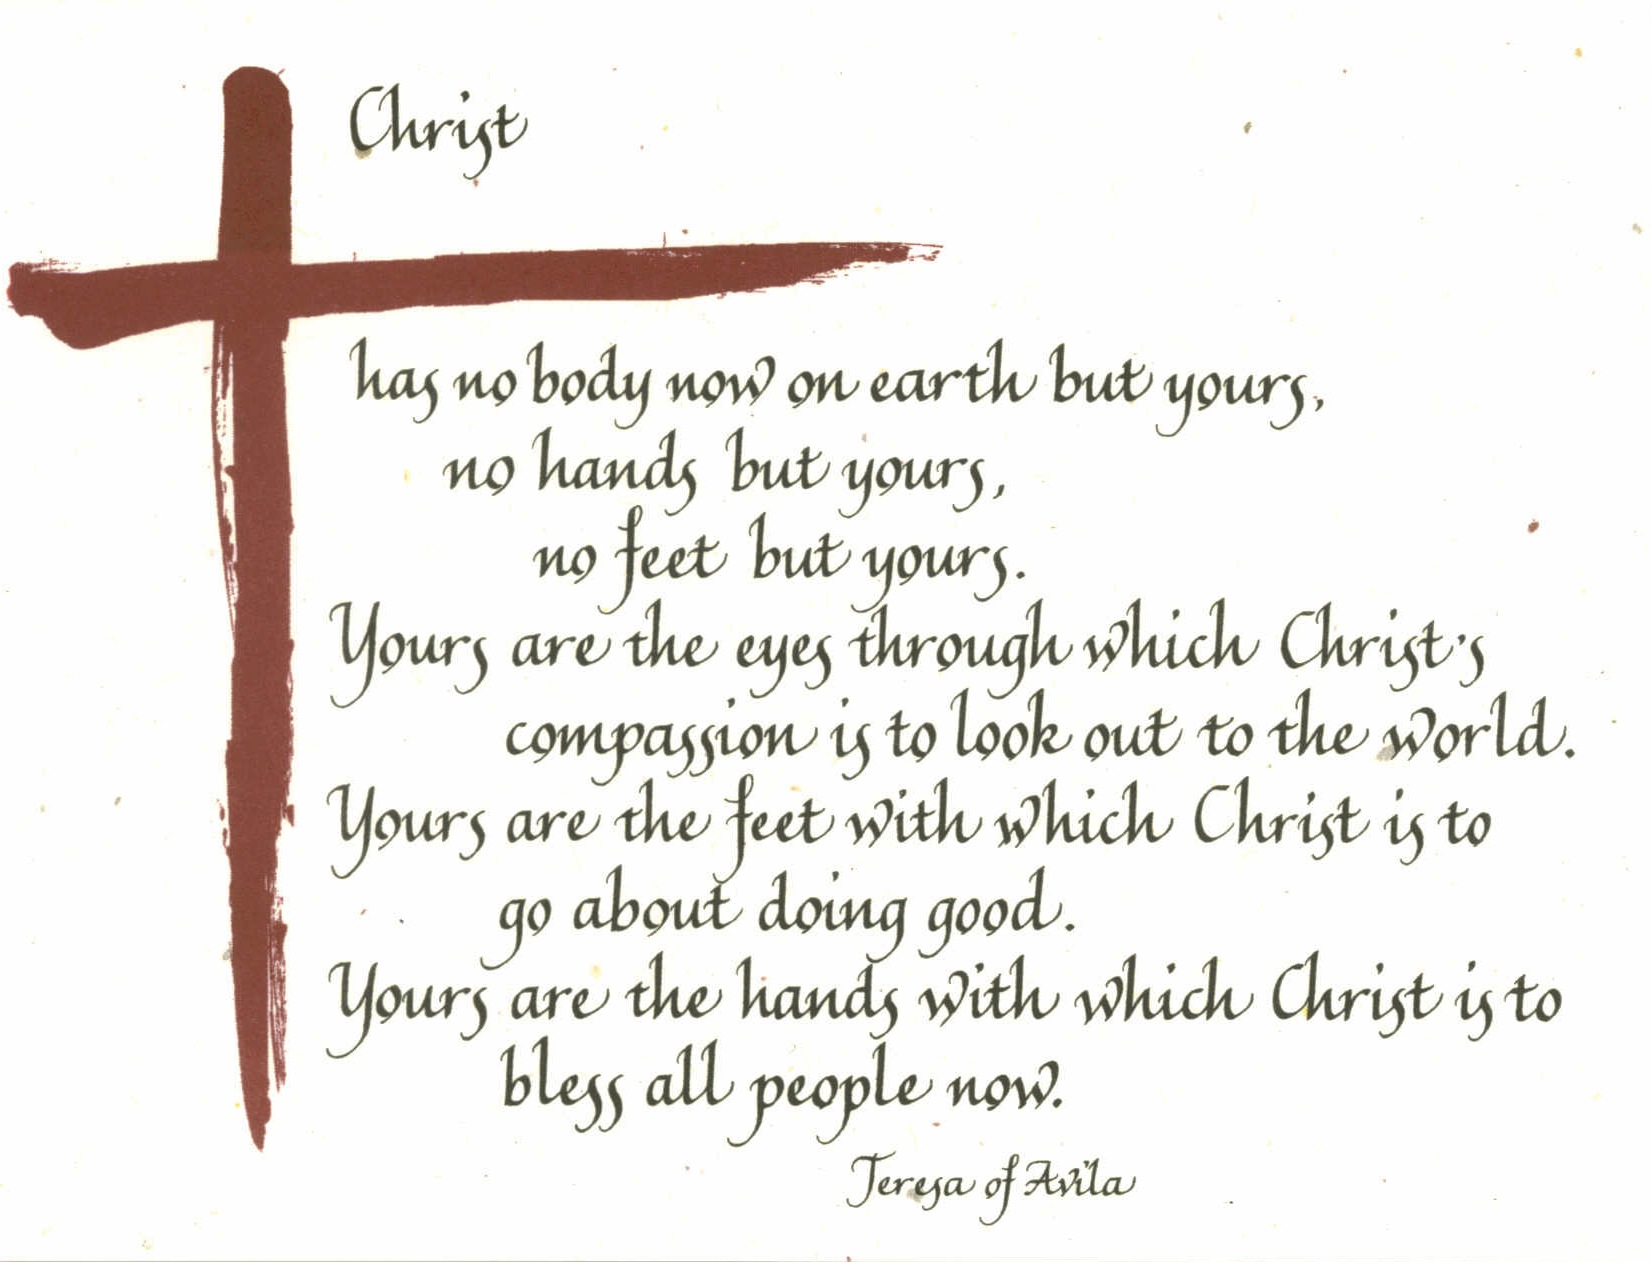 Christ
has no body now on earth but yours,
no hands but yours,
no feet but yours.
Yours are the eyes through which Christ's
compassion is to look out to the world.
Yours are the feet with which Christ is to
go about doing good.
Yours are the hands with which Christ is to
bless all people now.
Teresa of Avila